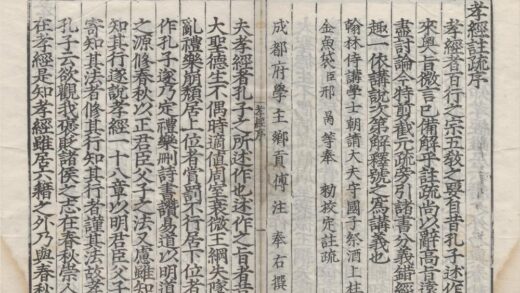 孝經註疏序
孝經者百行之宗五教之要自孔子述作
來奧旨微言已備解乎註疏尚以辭高旨遠
盡討論今特剪截元疏旁引諸書分義錯經
趣一依講說次第解釋號之為講義也
翰林侍講學士朝請大夫守國子祭酒上柱
金魚袋臣邢昺等奉 勑校定註疏
成都府學主鄉貢傅注 奉右撰
孝經序
夫孝經者孔子之所述作也述作之旨者昔
大聖德生不偶時適值周室衰微王綱失墜
亂禮樂崩頹居上位者賞罰不行居下位者
作孔子遂乃定禮樂刪詩書讚易道以明道
之源修春秋以正君臣父子之法又慮雖知
知其行遂說孝經一十八章以明君臣父子
寄知其法者修其行知其行者謹其法故孝
孔子云欲觀我褒貶諸侯之志在春秋崇人
在孝經是知孝經雖居六籍之外乃與春秋